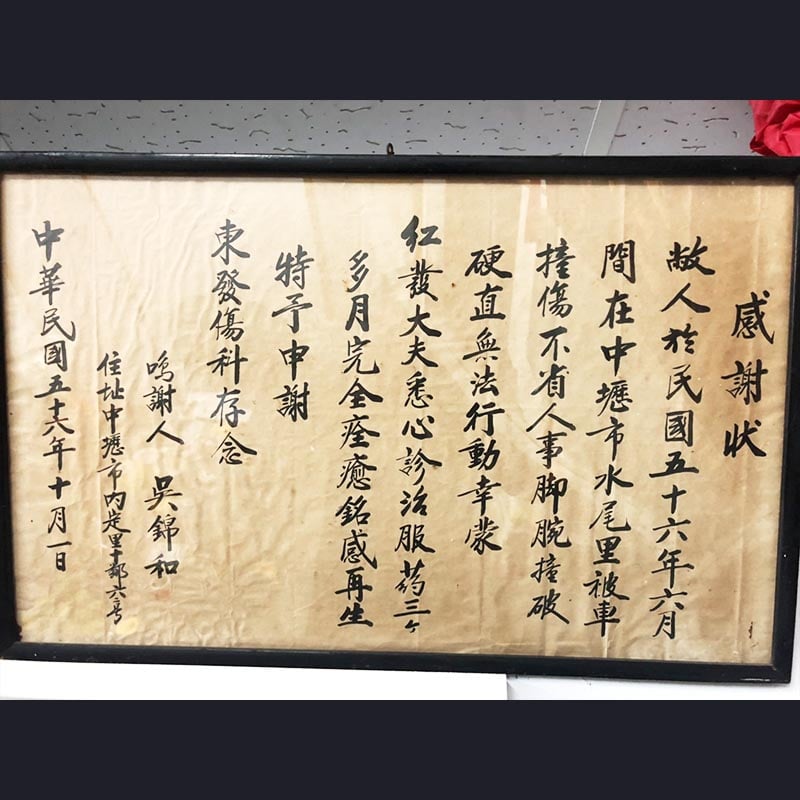 感謝狀
敝人於民國五十六年六月
間在中壢市水尾里被車
撞傷不省人事脚腕撞破
硬直無法行動幸蒙
紅發大夫悉心診治服药三ヶ
多月完全痊癒銘感再生
特予申謝
東發傷科存念
鳴謝人 吳錦和
住址中壢市內定里十鄰六号
中華民國五十六年十月一日